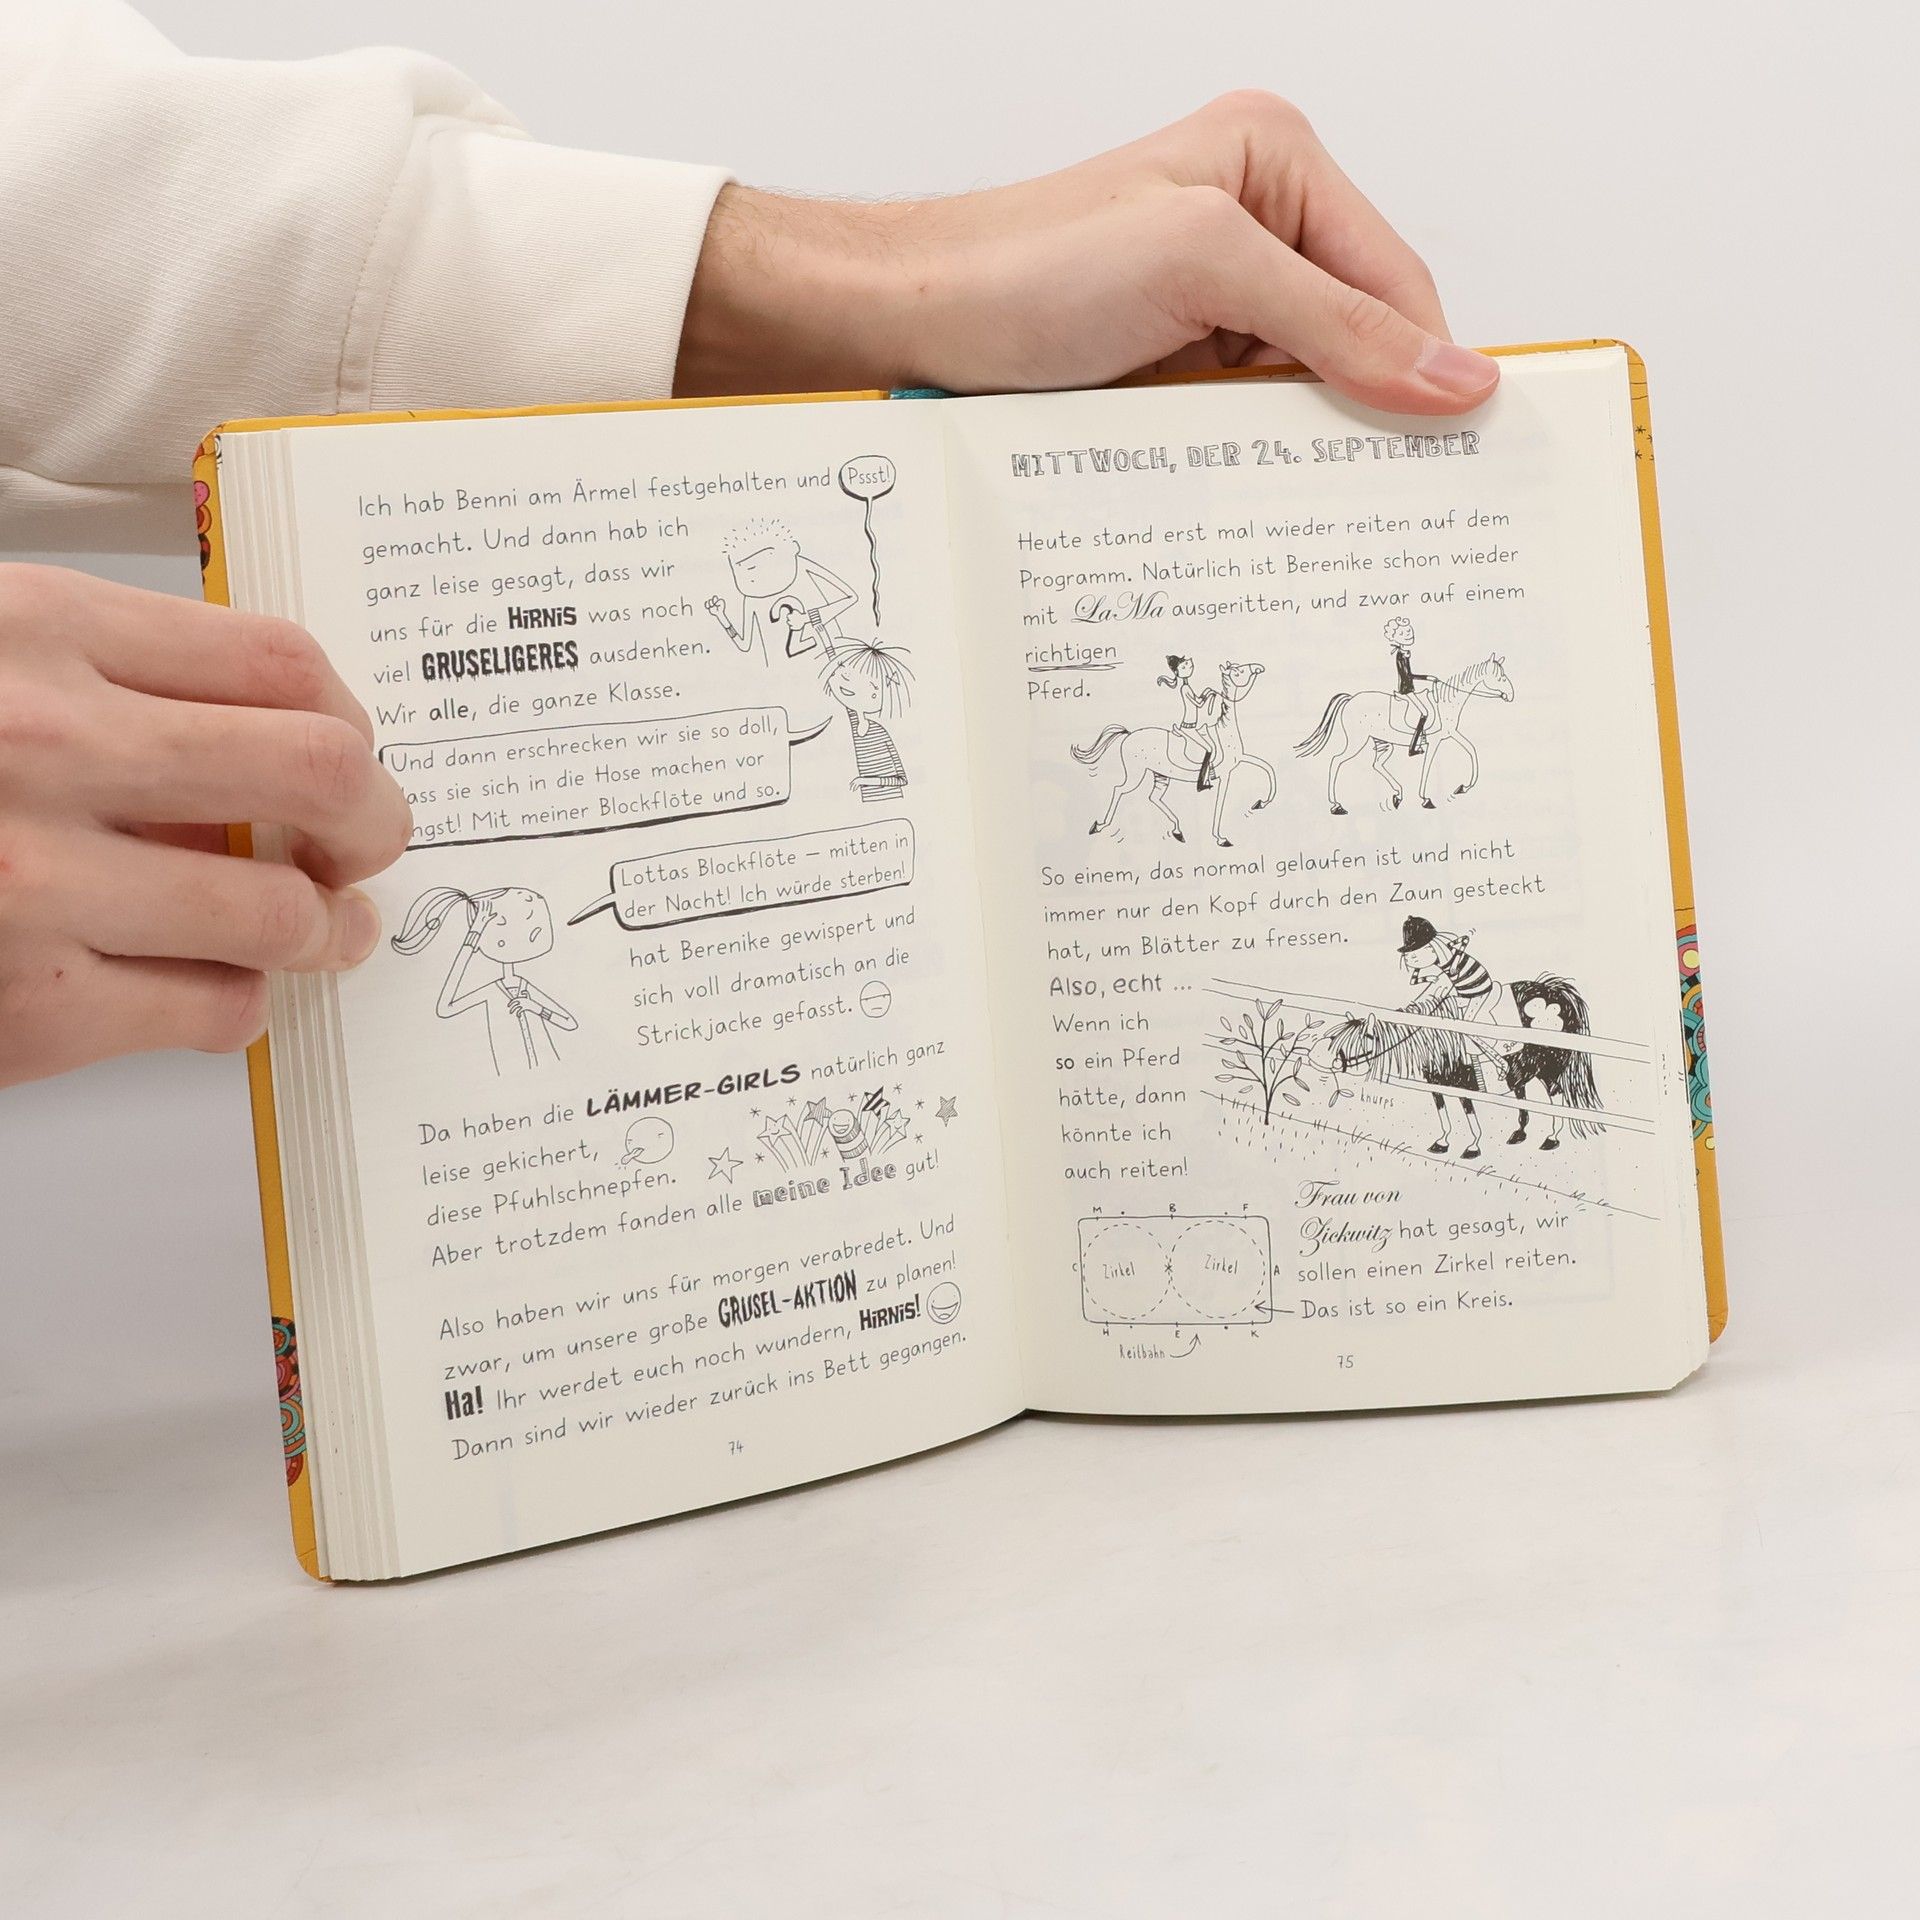 Ich hab Benni am Ärmel festgehalten und Pssst!
gemacht. Und dann hab ich
ganz leise gesagt, dass wir
uns für die HiRNiS was noch
viel GRUSELIGERES ausdenken.
Wir alle, die ganze Klasse.
Und dann erschrecken wir sie so doll,
ass sie sich in die Hose machen vor
ngst! Mit meiner Blockflöte und so.
Lottas Blockflöte – mitten in
der Nacht! Ich würde sterben!
hat Berenike gewispert und
sich voll dramatisch an die
Strickjacke gefasst.
Da haben die LÄMMER-GIRLS natürlich ganz
leise gekichert,
diese Pfuhlschnepfen.
Aber trotzdem fanden alle meine Idee gut!
Also haben wir uns für morgen verabredet. Und
zwar, um unsere große GRUSEL-AKTION zu planen!
Ha! Ihr werdet euch noch wundern, HiRNiS!
Dann sind wir wieder zurück ins Bett gegangen.
74
MITTWOCH, DER 24. SEPTEMBER
Heute stand erst mal wieder reiten auf dem
Programm. Natürlich ist Berenike schon wieder
mit LaMa ausgeritten, und zwar auf einem
richtigen
Pferd.
So einem, das normal gelaufen ist und nicht
immer nur den Kopf durch den Zaun gesteckt
hat, um Blätter zu fressen.
Also, echt ...
Wenn ich
so ein Pferd
hätte, dann
könnte ich
auch reiten!
knurps
Frau von
Zickwitz hat gesagt, wir
sollen einen Zirkel reiten.
Das ist so ein Kreis.
M B F
C Zirkel Zirkel A
H E K
Reitbahn
75